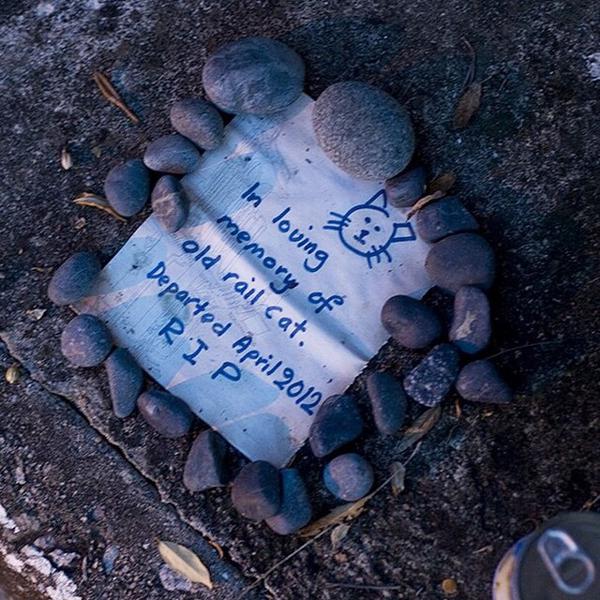 In loving
memory of
old rail cat.
Departed April 2012
R I P